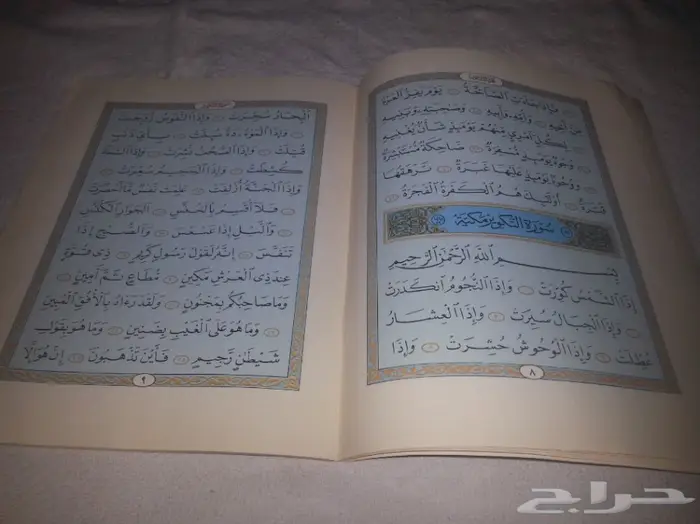 فَإِذَا جَآءَتِ ٱلصَّآخَّةُ ۝ يَوْمَ يَفِرُّ ٱلْمَرْءُ
مِنْ أَخِيهِ ۝ وَأُمِّهِۦ وَأَبِيهِ ۝ وَصَٰحِبَتِهِۦ وَبَنِيهِ
لِكُلِّ ٱمْرِئٍ مِّنْهُمْ يَوْمَئِذٍ شَأْنٌ يُغْنِيهِ
۝ وُجُوهٌ يَوْمَئِذٍ مُّسْفِرَةٌ ۝ ضَاحِكَةٌ مُّسْتَبْشِرَةٌ
۝ وَوُجُوهٌ يَوْمَئِذٍ عَلَيْهَا غَبَرَةٌ ۝ تَرْهَقُهَا
قَتَرَةٌ ۝ أُو۟لَٰٓئِكَ هُمُ ٱلْكَفَرَةُ ٱلْفَجَرَةُ ۝
سُورَةُ التَّكْوِيرِ مَكِّيَّة
بِسْمِ ٱللَّهِ ٱلرَّحْمَٰنِ ٱلرَّحِيمِ
إِذَا ٱلشَّمْسُ كُوِّرَتْ ۝ وَإِذَا ٱلنُّجُومُ ٱنكَدَرَتْ
۝ وَإِذَا ٱلْجِبَالُ سُيِّرَتْ ۝ وَإِذَا ٱلْعِشَارُ
عُطِّلَتْ ۝ وَإِذَا ٱلْوُحُوشُ حُشِرَتْ ۝ وَإِذَا
٨
ٱلْبِحَارُ سُجِّرَتْ ۝ وَإِذَا ٱلنُّفُوسُ زُوِّجَتْ
۝ وَإِذَا ٱلْمَوْءُۥدَةُ سُئِلَتْ ۝ بِأَىِّ ذَنۢبٍ
قُتِلَتْ ۝ وَإِذَا ٱلصُّحُفُ نُشِرَتْ ۝ وَإِذَا ٱلسَّمَآءُ
كُشِطَتْ ۝ وَإِذَا ٱلْجَحِيمُ سُعِّرَتْ ۝
وَإِذَا ٱلْجَنَّةُ أُزْلِفَتْ ۝ عَلِمَتْ نَفْسٌ مَّآ أَحْضَرَتْ
۝ فَلَآ أُقْسِمُ بِٱلْخُنَّسِ ۝ ٱلْجَوَارِ ٱلْكُنَّسِ
۝ وَٱلَّيْلِ إِذَا عَسْعَسَ ۝ وَٱلصُّبْحِ إِذَا
تَنَفَّسَ ۝ إِنَّهُۥ لَقَوْلُ رَسُولٍ كَرِيمٍ ۝ ذِى قُوَّةٍ
عِندَ ذِى ٱلْعَرْشِ مَكِينٍ ۝ مُّطَاعٍ ثَمَّ أَمِينٍ ۝
وَمَا صَاحِبُكُم بِمَجْنُونٍ ۝ وَلَقَدْ رَءَاهُ بِٱلْأُفُقِ ٱلْمُبِينِ
۝ وَمَا هُوَ عَلَى ٱلْغَيْبِ بِضَنِينٍ ۝ وَمَا هُوَ بِقَوْلِ
شَيْطَٰنٍ رَّجِيمٍ ۝ فَأَيْنَ تَذْهَبُونَ ۝ إِنْ هُوَ إِلَّا
٩
حراج